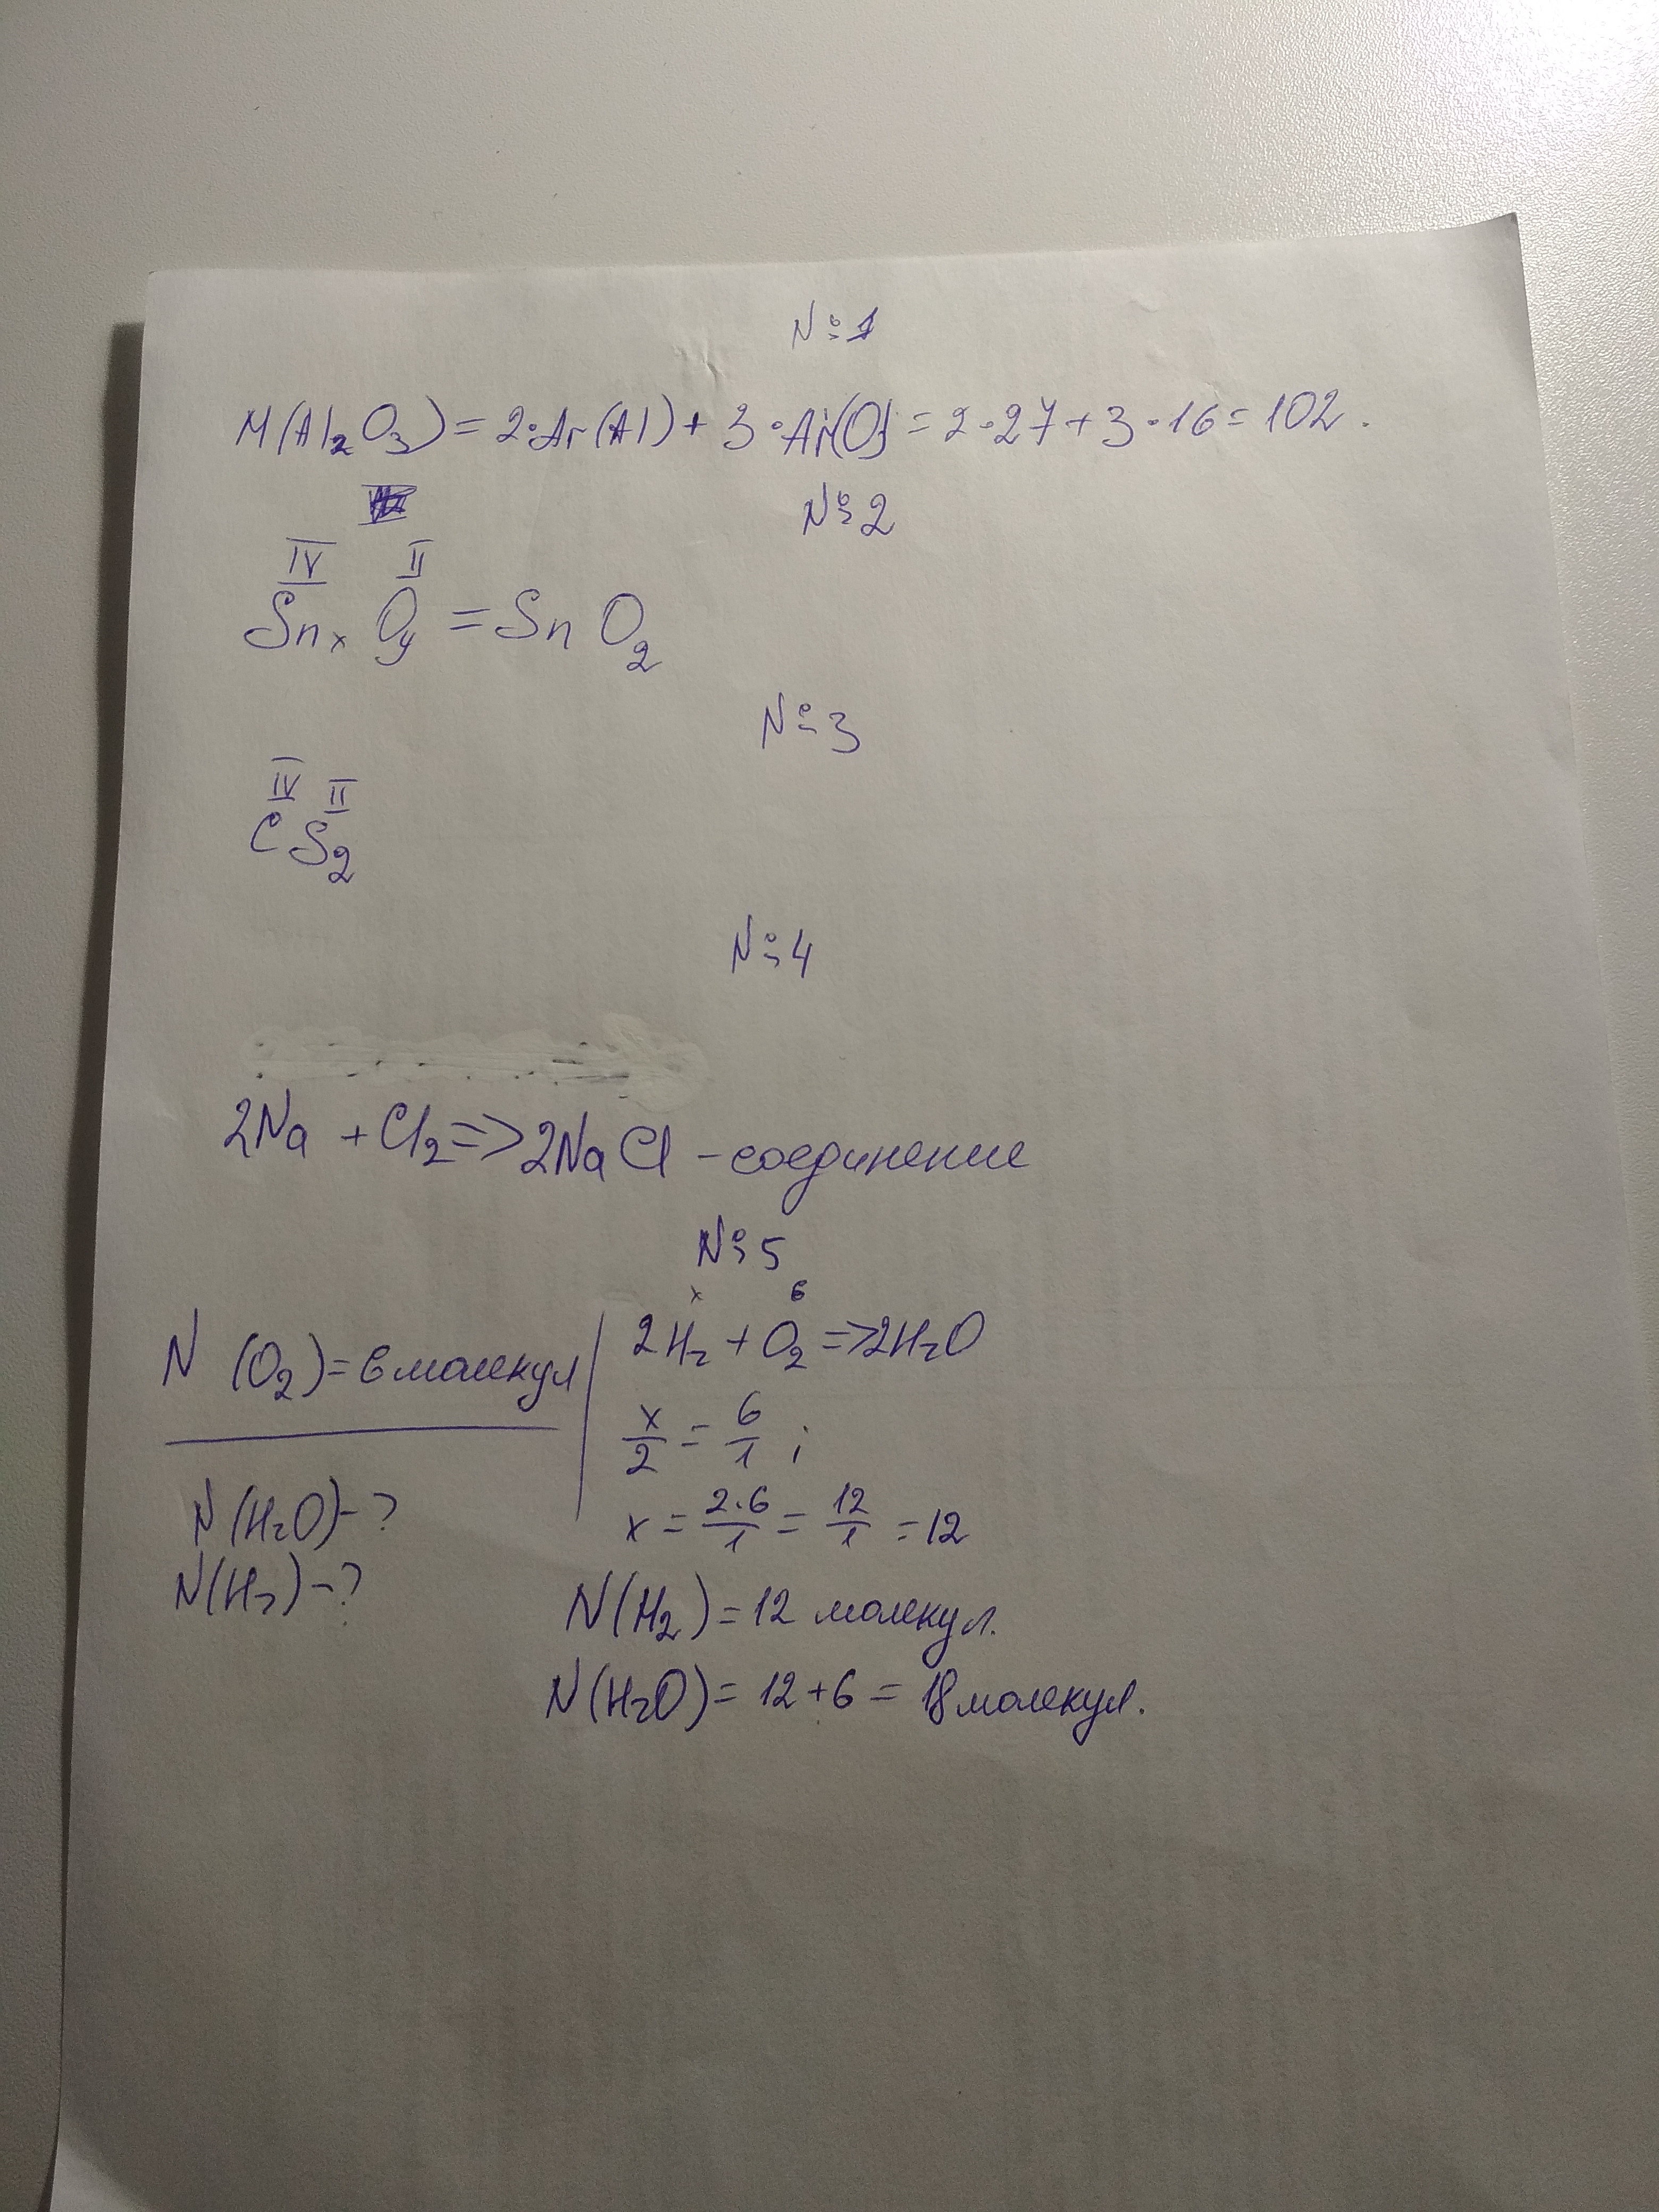 №1
M(Al₂O₃) = 2·Ar(Al) + 3·Ar(O) = 2·27 + 3·16 = 102.
№2
IV II
SnₓOᵧ = SnO₂
№3
IV II
CS₂
№4
2Na + Cl₂ => 2NaCl - соединение
№5
N (O₂) = 6 молекул
N(H₂O) - ?
N(H₂) - ?
x 6
2H₂ + O₂ => 2H₂O
x/2 = 6/1 ;
x = 2·6/1 = 12/1 = 12
N(H₂) = 12 молекул.
N(H₂O) = 12 + 6 = 18 молекул.